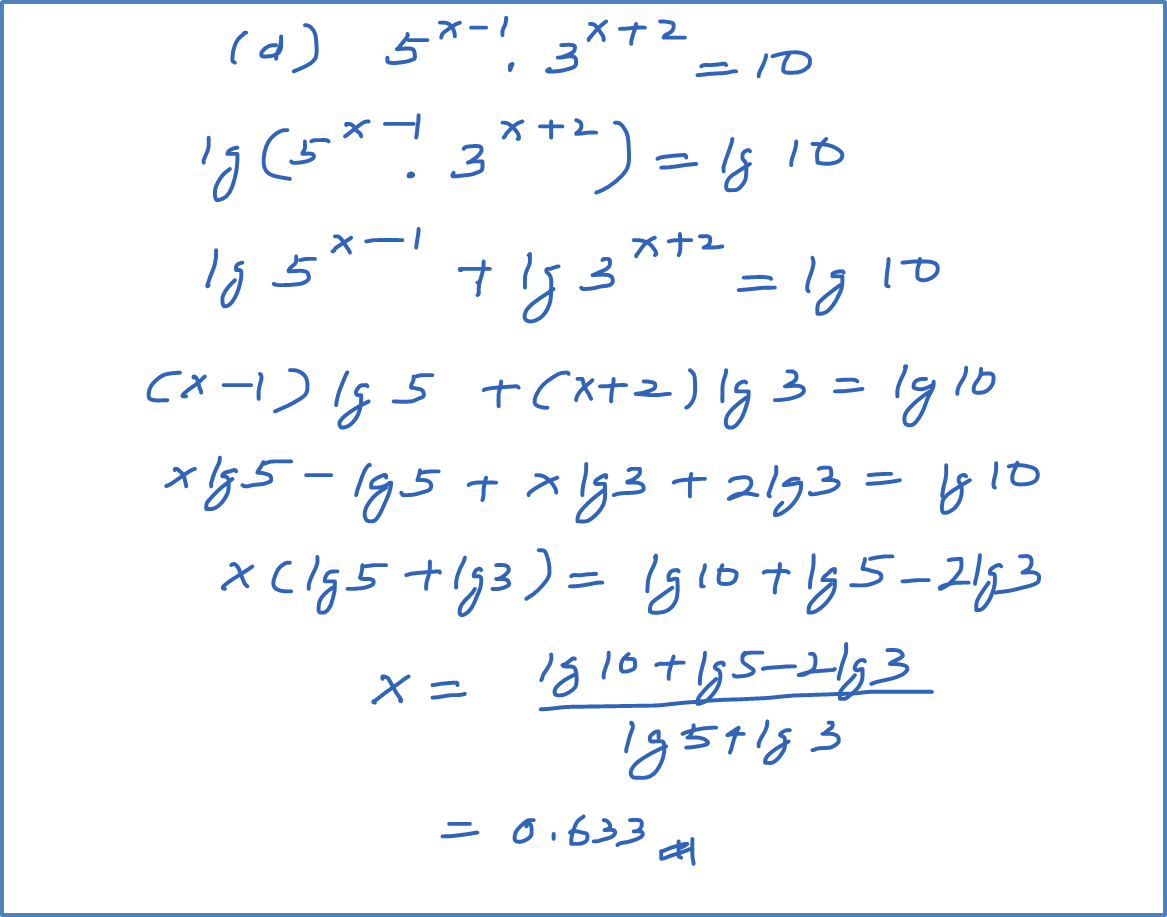 (d) 5^{x-1} · 3^{x+2} = 10
lg(5^{x-1} · 3^{x+2}) = lg 10
lg 5^{x-1} + lg 3^{x+2} = lg 10
(x-1) lg 5 + (x+2) lg 3 = lg 10
x lg 5 - lg 5 + x lg 3 + 2 lg 3 = lg 10
x (lg 5 + lg 3) = lg 10 + lg 5 - 2 lg 3
x = \frac{lg 10 + lg 5 - 2 lg 3}{lg 5 + lg 3}
= 0.633 #